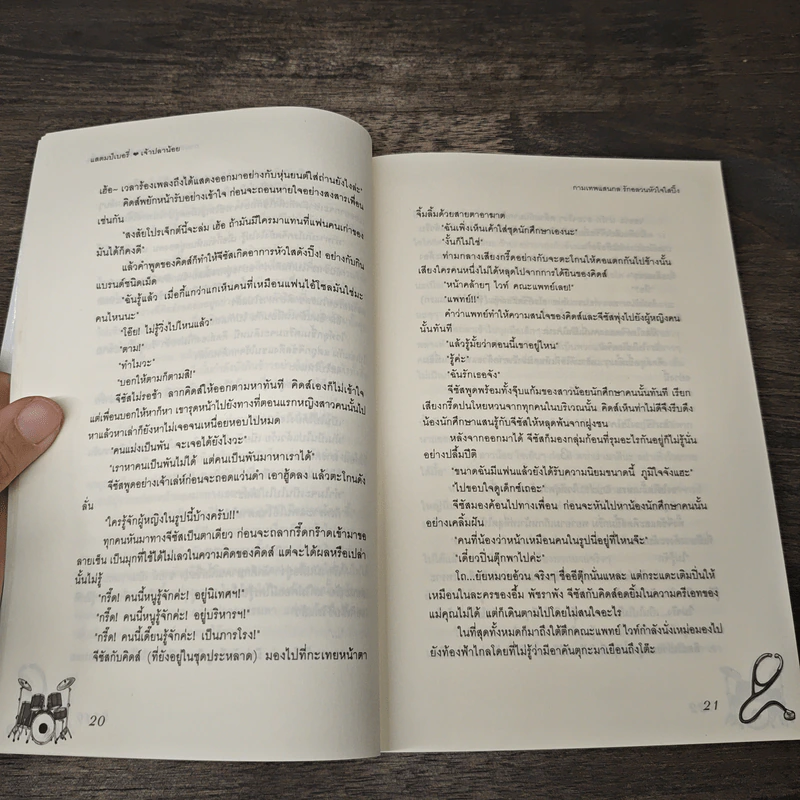 แสตมป์เบอรี่ ❤ เจ้าปลาน้อย
เฮ้อ- เวลาร้องเพลงถึงได้แสดงออกมาอย่างกับหุ่นยนต์ใส่ถ่านยังไงล่ะ"
คิดส์พยักหน้ารับอย่างเข้าใจ ก่อนจะถอนหายใจอย่างสงสารเพื่อน
เช่นกัน
"สงสัยโปรเจ็กต์นี้จะล่ม เฮ้อ ถ้ามันมีใครมาแทนที่แฟนคนเก่าของ
มันได้ก็คงดี"
แล้วคำพูดของคิดส์ก็ทำให้จีซัสเกิดอาการหัวใสดังปิ๊ง! อย่างกับกิน
แบรนด์ชนิดเม็ด
"ฉันรู้แล้ว เมื่อกี้แกว่าแกเห็นคนที่เหมือนแฟนไอ้โซลมันใช่มะ
คนไหนนะ"
"โอ๊ย! ไม่รู้วิ่งไปไหนแล้ว"
"ตาม!"
"ทำไมวะ"
"บอกให้ตามก็ตามสิ!"
จีซัสไม่รอช้า ลากคิดส์ให้ออกตามหาทันที คิดส์เองก็ไม่เข้าใจ
แต่เพื่อนบอกให้หาก็หา เขารุดหน้าไปยังทางที่ตอนแรกหญิงสาวคนนั้นไป
หาแล้วหาเล่าก็ยังหาไม่เจอจนเหนื่อยหอบไปหมด
"คนแม่งเป็นพัน จะเจอได้ยังไงวะ"
"เราหาคนเป็นพันไม่ได้ แต่คนเป็นพันมาหาเราได้"
จีซัสพูดอย่างเจ้าเล่ห์ก่อนจะถอดแว่นดำ เอาฮู้ดลง แล้วตะโกนดัง
ลั่น
"ใครรู้จักผู้หญิงในรูปนี้บ้างครับ!!"
ทุกคนหันมาทางจีซัสเป็นตาเดียว ก่อนจะถลากรี๊ดกร๊าดเข้ามาขอ
ลายเซ็น เป็นมุกที่ใช้ได้ไม่เลวในความคิดของคิดส์ แต่จะได้ผลหรือเปล่า
นั้นไม่รู้
"กรี๊ด! คนนี้หนูรู้จักค่ะ! อยู่นิเทศฯ!"
"กรี๊ด! คนนี้หนูรู้จักค่ะ! อยู่บริหารฯ!"
"กรี๊ด! คนนี้เดี๊ยนรู้จักค่ะ! เป็นภารโรง!"
จีซัสกับคิดส์ (ที่ยังอยู่ในชุดประหลาด) มองไปที่กะเทยหน้าตา
20
กามเทพแสนกล รักอลวนหัวใจใสปิ๊ง
จิ้มลิ้มด้วยสายตาอาฆาต
"ฉันเพิ่งเห็นเค้าใส่ชุดนักศึกษาเองนะ"
"งั้นก็ไม่ใช่"
ท่ามกลางเสียงกรี๊ดอย่างกับจะตะโกนให้คอแตกกันไปข้างนั้น
เสียงใครคนหนึ่งไม่ได้หลุดไปจากการได้ยินของคิดส์
"หน้าคล้ายๆ ไวท์ คณะแพทย์เลย!"
"แพทย์!!"
คำว่าแพทย์ทำให้ความสนใจของคิดส์และจีซัสพุ่งไปยังผู้หญิงคน
นั้นทันที
"แล้วรู้มั้ยว่าตอนนี้เขาอยู่ไหน"
"รู้ค่ะ"
"ฉันรักเธอจัง"
จีซัสพูดพร้อมทั้งจุ๊บแก้มของสาวน้อยนักศึกษาคนนั้นทันที เรียก
เสียงกรี๊ดปนโหยหวนจากทุกคนในบริเวณนั้น คิดส์เห็นท่าไม่ดีจึงรีบดึง
น้องนักศึกษาแสนรู้กับจีซัสให้หลุดพ้นจากฝูงชน
หลังจากออกมาได้ จีซัสก็มองกลุ่มก้อนที่รุมอะไรกันอยู่ก็ไม่รู้นั่น
อย่างปลื้มปีติ
"ขนาดฉันมีแฟนแล้วยังได้รับความนิยมขนาดนี้ ภูมิใจจังแฮะ"
"ไปขอบใจดูเด็กซ์เถอะ"
จีซัสมองค้อนไปทางเพื่อน ก่อนจะหันไปหาน้องนักศึกษาคนนั้น
อย่างเคลิ้มฝัน
"คนที่น้องว่าหน้าเหมือนคนในรูปนี้อยู่ที่ไหนจ๊ะ"
"เดี๋ยวปิ่นตุ๊กพาไปค่ะ"
โถ...ยัยหมวยอ้วน จริงๆ ชื่ออีตุ๊กนั่นแหละ แต่กระแดะเติมปิ่นให้
เหมือนในละครของอั้ม พัชราพัง จีซัสกับคิดส์อดยิ้มในความครีเอทของ
แม่คุณไม่ได้ แต่ก็เดินตามไปโดยไม่สนใจอะไร
ในที่สุดทั้งหมดก็มาถึงใต้ตึกคณะแพทย์ ไวท์กำลังนั่งเหม่อมองไป
ยังท้องฟ้าไกลโดยที่ไม่รู้ว่ามีอาคันตุกะมาเยือนถึงโต๊ะ
21